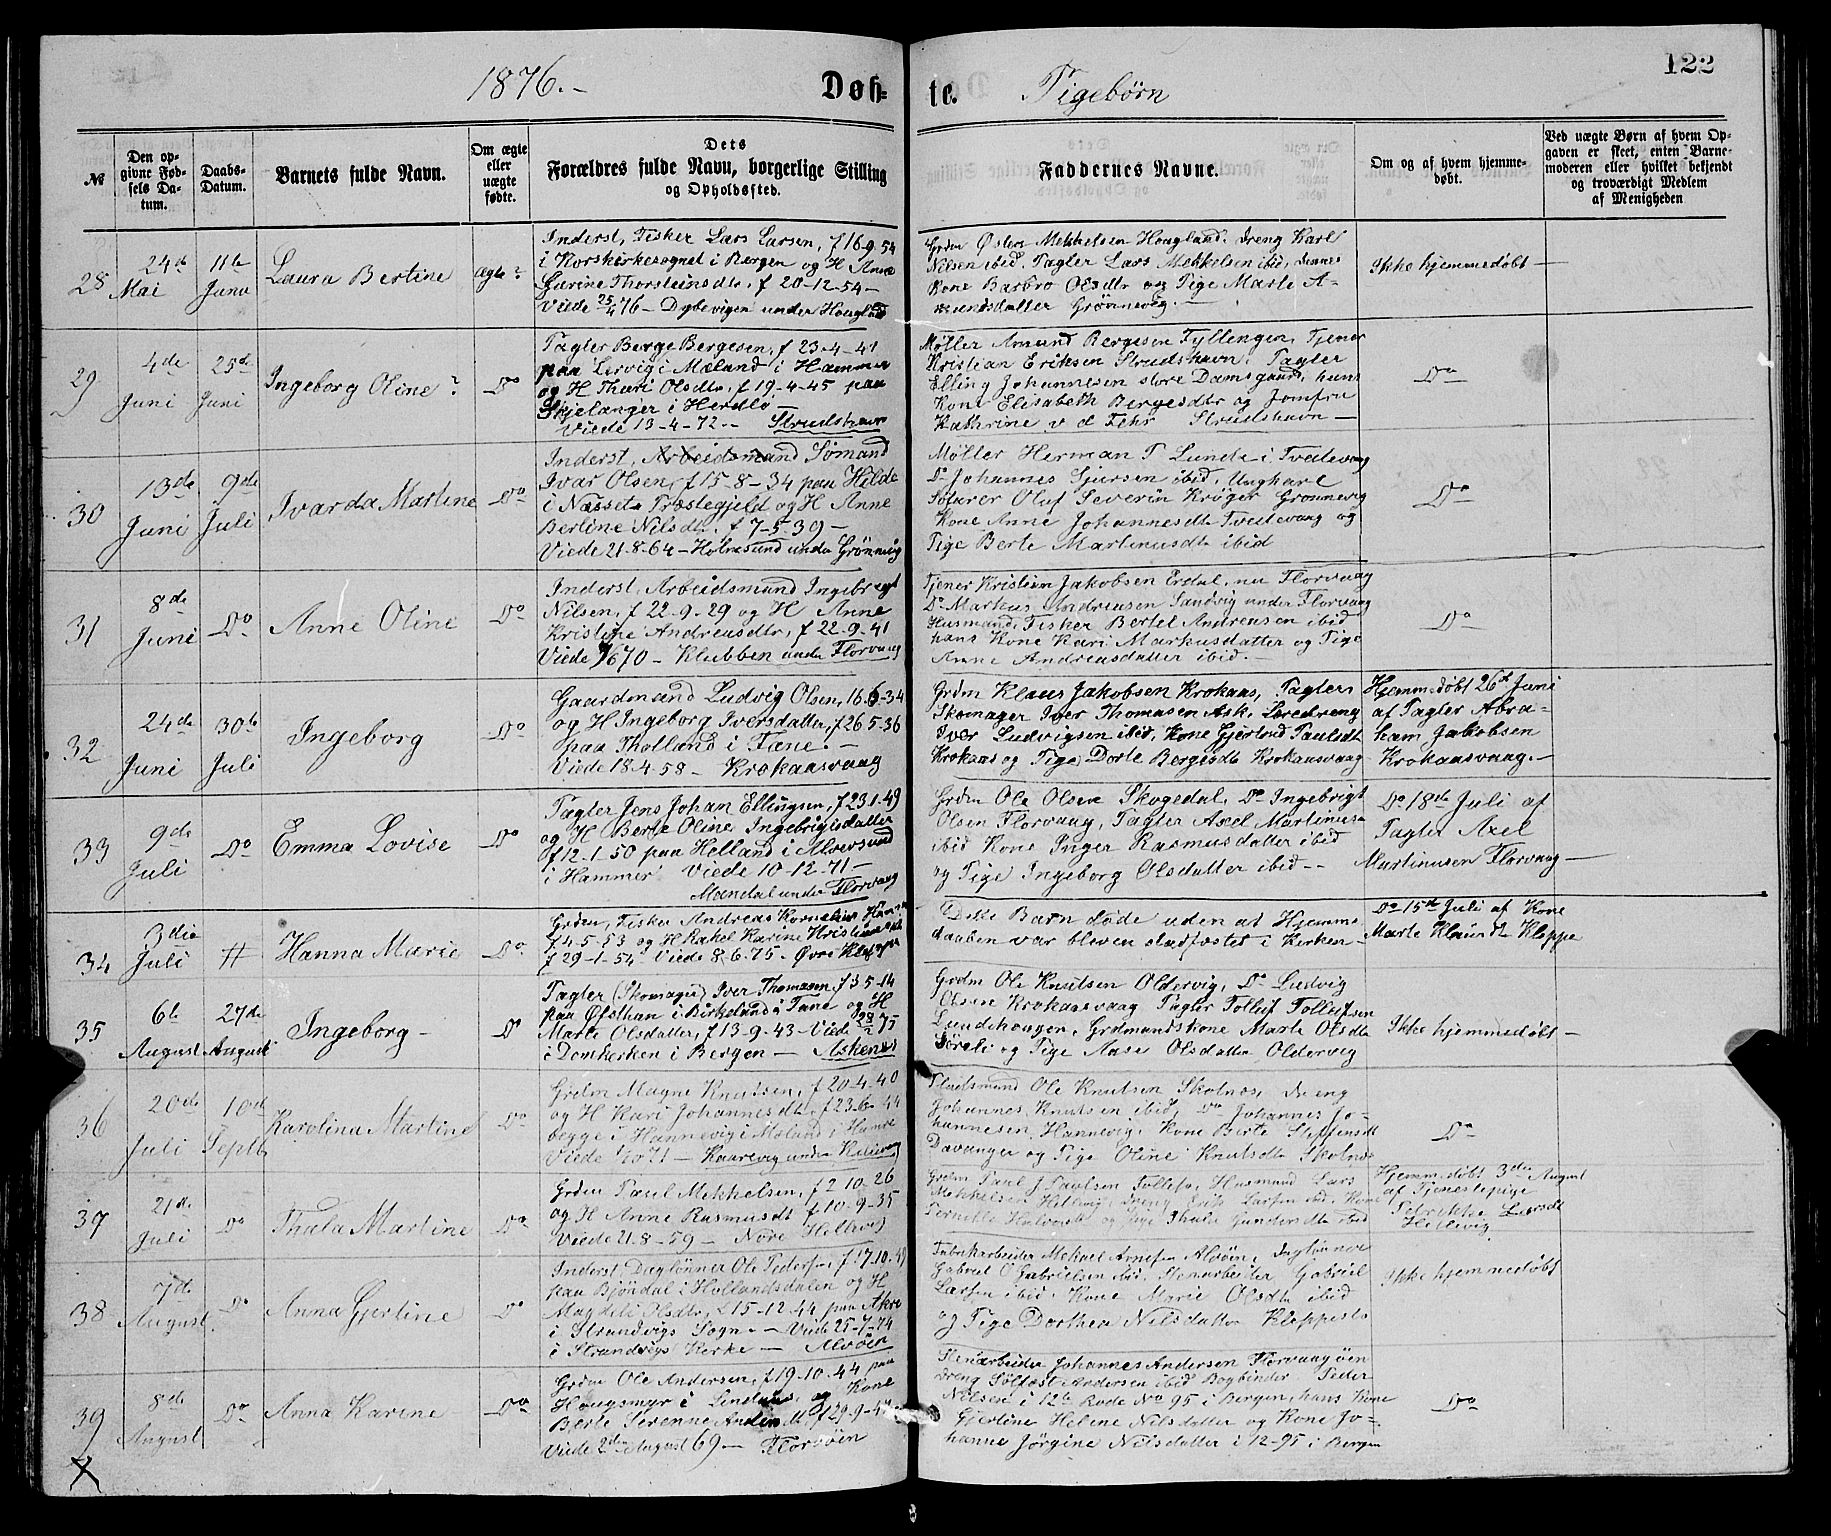 1876.- Døb- te. Tigebørn 122
№
Den opgivne Fødsels Datum.
Daabs-Datum.
Barnets fulde Navn.
Om ægte eller uægte fødte.
Dets Forældres fulde Navn, borgerlige Stilling og Opholdssted.
Faddernes Navne.
Om og af hvem hjemmedøbt.
Ved uægte Børn af hvem Opgaven er skeet, enten Barnemoderen eller hvilket bekjendt og troværdigt Medlem af Menigheden
28
24de Mai
11te Juno
Laura Bertine
ægte
Inderst, Fisker Lars Larsen, f 16-9-54
i Korskirkesognet i Bergen og H Anne
Karine Thorsteinsdtr, f 20-12-54-
Viede 25/4 76 - Dybevigen under Hougland
Grdm Østen Mekkelsen Hougland. Dreng Karl
Nilsen ibid, Tagler Lars Mekkelsen ibid, dennes
Kone Barbro Olsdtr og Pige Marte A-
mundsdatter Grønnevig.-
Ikke hjemmedøbt-
29
4de Juni
25de Juni
Ingeborg Oline
Do
Tagler Berge Bergesen, f 23-4-41
paa Lervig i Mæland i Hammer
og H Thuri Olsdtr, f 19-4-45 paa
Skjelanger i Herdlø-
Viede 13-4-72-- Strudshavn
Møller Amund Bergesen Fyllengen, Tjener
Kristian Eriksen Strudshavn, Tagler
Elling Johannesen store Damsgaard, hans
Kone Elisabeth Bergesdtr og Jomfru
Kathrine v d Fehr Strudshavn-
Do
30
13de Juni
9de Juli
Ivarda Martine
Do
Inderst, Arbeidsmand Sømand
Ivar Olsen, f 15-8-34 paa Hilde
i Næsset Præstegjeld og H Anne
Bertine Nilsdtr, f 7-5-39-
Viede 21-8-64- Holmesund under Grønnevig
Møller Herman T Lunde i Tvedtevaag
Do Johannes Sjursen ibid, Ungkarl
Oluf Severin Krøger Grønnevig
Kone Anne Johannesdtr Tvedtevaag og
Pige Berte Martinusdtr ibid
Do
31
8de Juni
Do
Anne Oline
Do
Inderst, Arbeidsmand Ingebregt
Nilsen, f 22-9-29 og H Anne
Kristine Andreasdtr, f 22-9-41
Viede 7/6 70- Klubben under Florvaag
Tjener Kristian Jakobsen Erdal, nu Florvaag
Do Markus Andreasen Sandvig under Florvaag
Husmand, Fisker Bertel Andreasen ibid
hans Kone Kari Markusdatter og Pige
Anne Andreasdatter ibid.-
Do
32
24de Juni
30te Juli
Ingeborg
Do
Gaardmand Ludvig Olsen, 16-6-34
og H Ingeborg Iversdatter, f 26-5-36
paa Tholland i Fane.-
Viede 18-4-58- Krokaasvaag
Grdm Klaus Jakobsen Krokaas, Tagler
Skomager Iver Thomasen Ask, Læredreng
Ivar Ludvigsen ibid, Kone Gjertrud Paulsdtr
Krokaas og Pige Dorte Bergesdtr Krokaasvaag
Hjemmedøbt 26de Juni
af Tagler Abra-
ham Jakobsen
Krokaasvaag.-
33
9de Juli
Do
Emma Lovise
Do
Tagler Jens Johan Ellingsen, f 23-1-49
og H Berte Oline Ingebrigtsdatter
f 12-1-50 paa Helland i Alversund
i Hammer Viede 10-12-71-
Mandal under Florvaag
Grdm Ole Olsen Skogedal, Do Ingebrigt
Olsen Florvaag, Tagler Axel Martinusen
ibid Kone Inger Rasmusdatter ibid
og Pige Ingeborg Olsdatter ibid--
Do 18de Juli af
Tagler Axel
Martinusen Florvaag-
34
3die Juli
#
Hanna Marie
Do
Grdm, Fisker Andreas Kornelius
f 4-5-53 og H Rakel Karine
f 29-1-54- Viede 8-6-75- Øvre Kleppe
Dette Barn døde uden at Hjemme-
daaben var bleven stadfæstet i Kirken-
Do 15de Juli af Kone
Marte Klausdtr Kleppe
35
6te August
27de August
Ingeborg-
Do
Tagler (Skomager) Iver Thomasen, f 3-5-14
paa Østthun i Birkeland i Fane og H
Marte Olsdatter, f 13-9-43- Viede 28/2 75
i Domkirken i Bergen- Askenes
Grdm Ole Knutsen Oldervig, Do Ludvig
Olsen Krokaasvaag Tagler Tolluf Tollufsen
Lundehaugen, Grdmandskone Marte Olsdtr
og Pige Aase Olsdatter Oldervig
Ikke hjemmedøbt-
36
20de Juli
10de Septb
Karolina Martine
Do
Grdm Magne Knutsen, f 20-4-40
og H Kari Johannesdtr, f 23-6-44
begge i Hannevig i Mæland i Hamre
Viede 71- Kaarevig under
Pladsmand Ole Knutsen Skolnæs, Dreng
Johannes Knutsen ibid, Do Johannes Jo-
hannesen Hannevig, Kone Berte Steffensdtr
Davanger og Pige Oline Knutsdtr Skolnæs
Do
37
21de Juli
Do
Thala Martine
Do
Grdm Paul Mekkelsen, f 2-10-26
og H Anne Rasmusdt f 10-9-35
Viede 21-8-59- Nore
Grdm Paul J Paulsen Follesø, Husmand Lars
Mekkelsen Hetlevig, Dreng Erik Larsen ibid, Kone
Pernille og Pige Thala Gundersdtr ibid
Hjemmedøbt 3die August
af Tjenestepige
Larsdt
Hetlevig
38
7de August
Do
Anna Gjertine
Do
Inderst Dagløner Ole Pedersen, f 17-10-49
paa Bjøndal i Hollandsdalen og H
Magdeli Olsdtr, f 15-12-44 paa Akre
i Strandvigs Sogn.- Viede 25-7-74
i Strandvigs Kirke- Alvøen
Fabrikarbeider Mekael Arnesen Alvøen, Dagløner
Gabriel O Gabrielsen ibid, Stenarbeider Gabriel
Larsen ibid, Kone Marie Olsdtr ibid
og Pige Dorthea Nilsdatter Kleppestø
Ikke hjemmedøbt
39
8de August
Do
Anna Karine
Do
Grdm Ole Andersen, f 19-10-44 paa
Hougsmyr i Lindaas, og Kone
Berte Serenne f 29-9-4
Viede 2den August 69- Florvøen
Stenarbeider Johannes Andersen Florvaagøen
Dreng Andersen ibid Bogbinder Peder
Nilsen i 12te Rode No 95 i Bergen, hans Kone
Gjertine Helene Nilsdatter og Kone Jo-
hanne Jørgine Nilsdatter i 12-95 i Bergen
Do